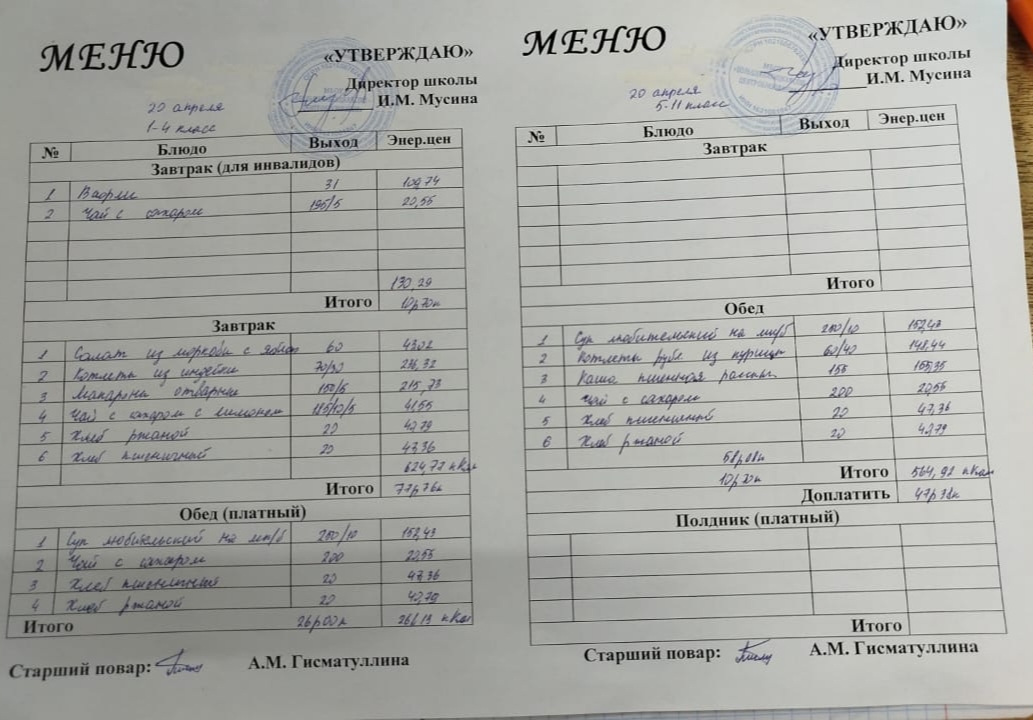 МЕНЮ
«УТВЕРЖДАЮ»
Директор школы
И.М. Мусина
20 апреля
1-4 класс
№ Блюдо Выход Энер.цен
Завтрак (для инвалидов)
1 Вафли 31 109,74
2 Чай с сахаром 195/5 20,55
130,29
Итого 10р70к
Завтрак
1 Салат из моркови с 60
2 Котлеты из индейки
3 Макароны отварные 150/5 215,73
4 Чай с сахаром с лимоном 41,55
5 Хлеб ржаной 20 40,79
6 Хлеб пшеничный 20 47,36
624,77 кКал
Итого 77р76к
Обед (платный)
1 Суп любительский на м/б 250/10 152,43
2 Чай с сахаром 200 20,55
3 Хлеб пшеничный 20 47,36
4 Хлеб ржаной 20 40,79
Итого 26р00к 261,13 кКал
Старший повар: А.М. Гисматуллина
МЕНЮ
«УТВЕРЖДАЮ»
Директор школы
И.М. Мусина
20 апреля
5-11 класс
№ Блюдо Выход Энер.цен
Завтрак
Итого
Обед
1 Суп любительский на м/б 250/10 152,43
2 Котлеты рубл из курицы 60/40 148,44
3 Каша пшенная 155 155,35
4 Чай с сахаром 200 20,55
5 Хлеб пшеничный 20 47,36
6 Хлеб ржаной 20 40,79
58р08к
10р70к Итого 564,92 кКал
Доплатить 47р38к
Полдник (платный)
Итого
Старший повар: А.М. Гисматуллина